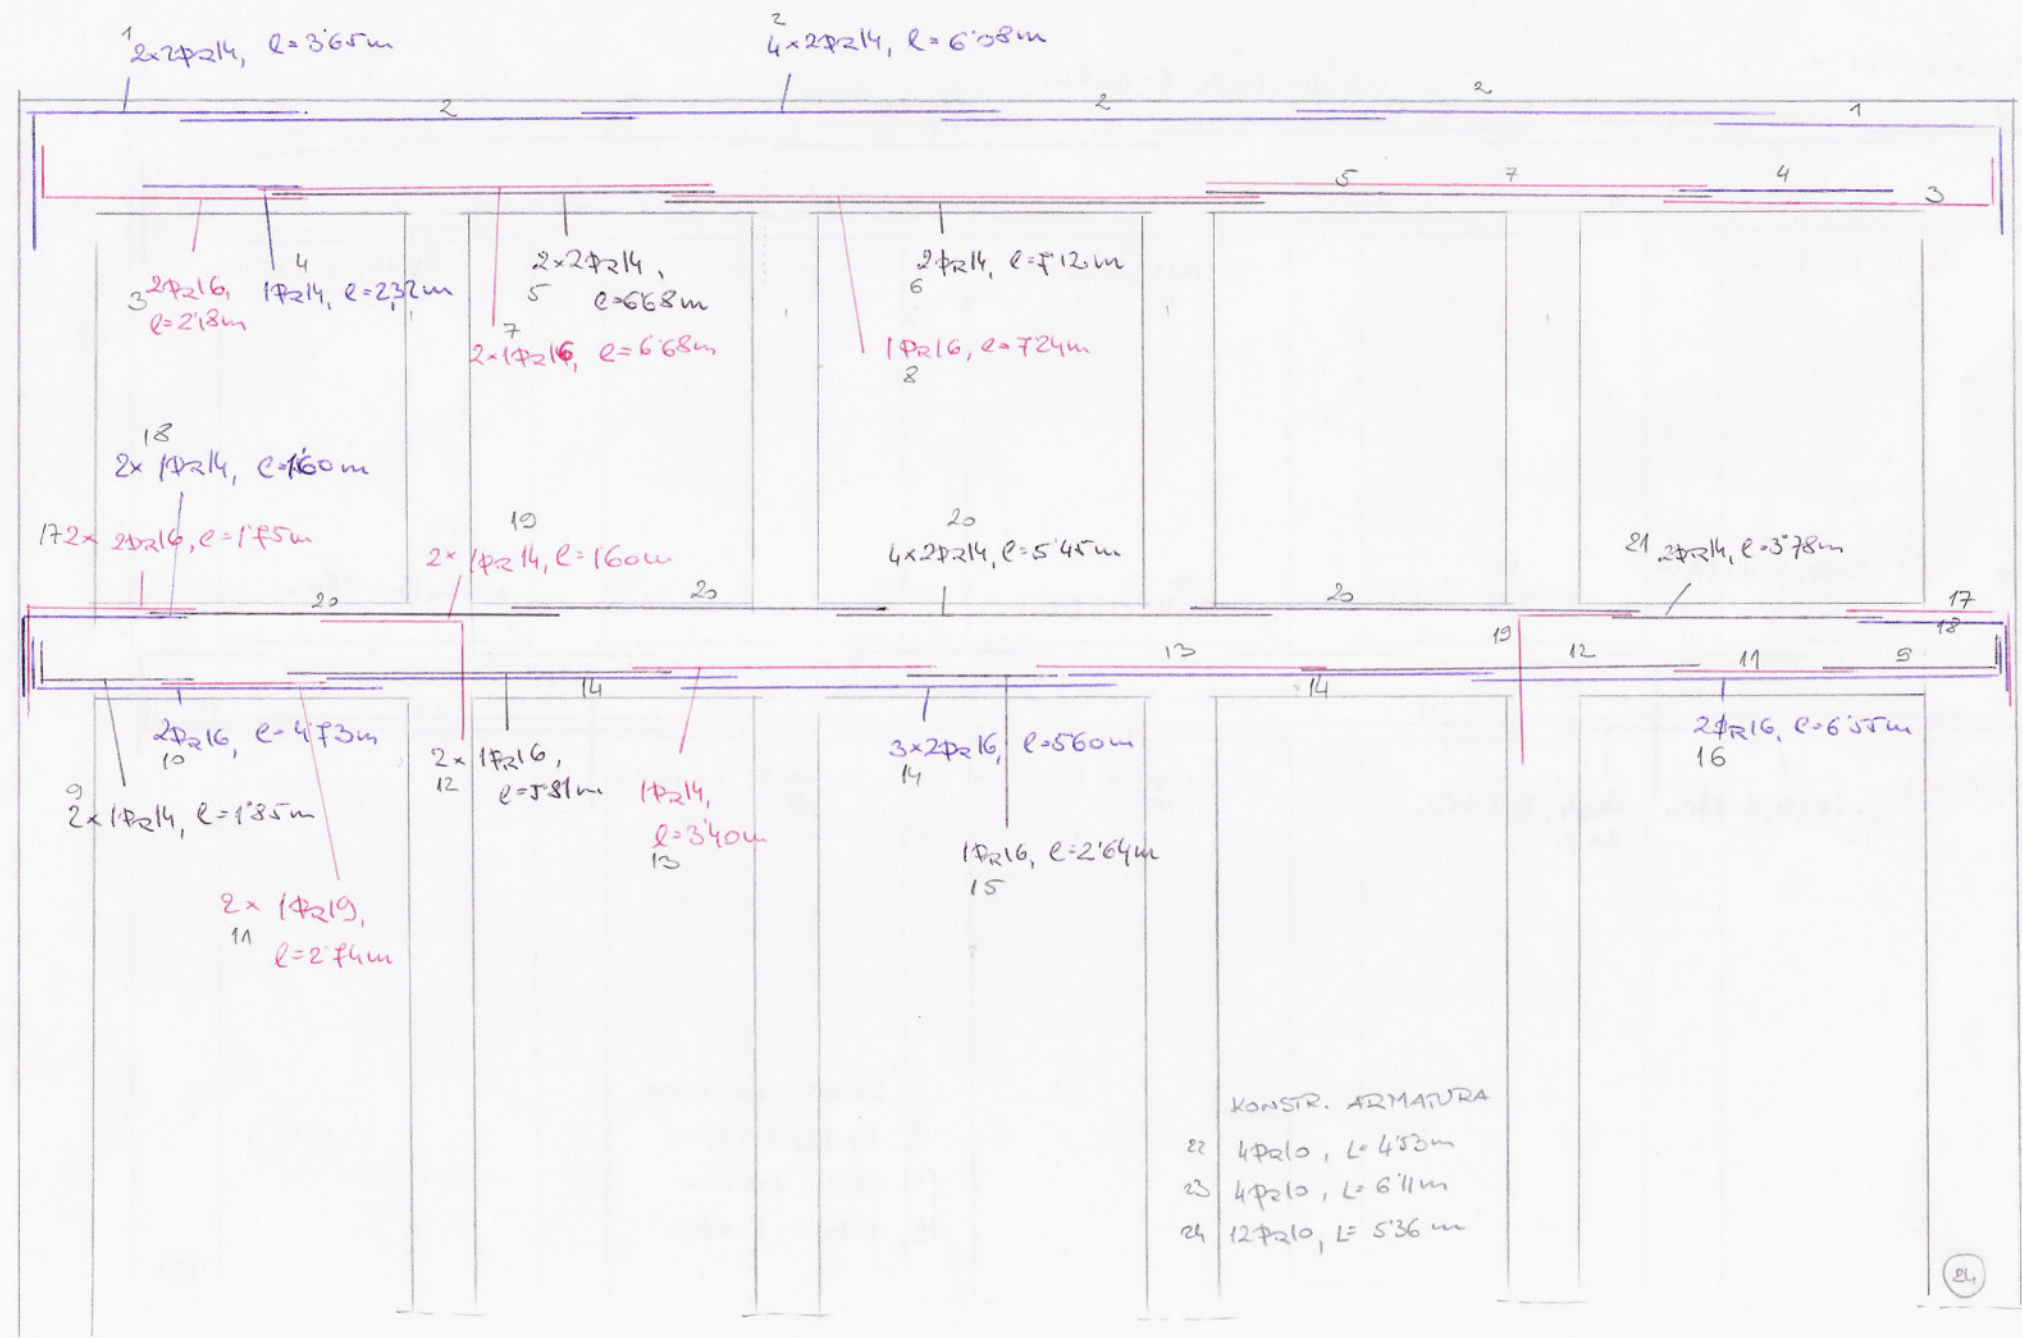 1
2×2ΦR14, l=3'65m
2
4×2ΦR14, l=6'08m
2
2
2
1
5
7
4
3
2ΦR16,
3
l=2'18m
4
1ΦR14, l=2'32m
2×2ΦR14,
5
l=6'68m
7
2×1ΦR16, l=6'68m
2ΦR14, l=7'12m
6
1ΦR16, l=7'24m
8
18
2× 1ΦR14, l=1'60m
17 2× 2ΦR16, l=1'75m
19
2× 1ΦR14, l=1'60m
20
4×2ΦR14, l=5'45m
21 2ΦR14, l=3'78m
20
20
20
17
18
19
13
12
11
9
14
14
2ΦR16, l=4'73m
10
9
2×1ΦR14, l=1'85m
2× 1ΦR16,
12
l=5'81m
1ΦR14,
l=3'40m
13
3×2ΦR16, l=5'60m
14
1ΦR16, l=2'64m
15
2ΦR16, l=6'55m
16
2× 1ΦR19,
11
l=2'74m
KONSTR. ARMATURA
22 4ΦR10, L=4'53m
23 4ΦR10, L=6'11m
24 12ΦR10, L=5'36m
24